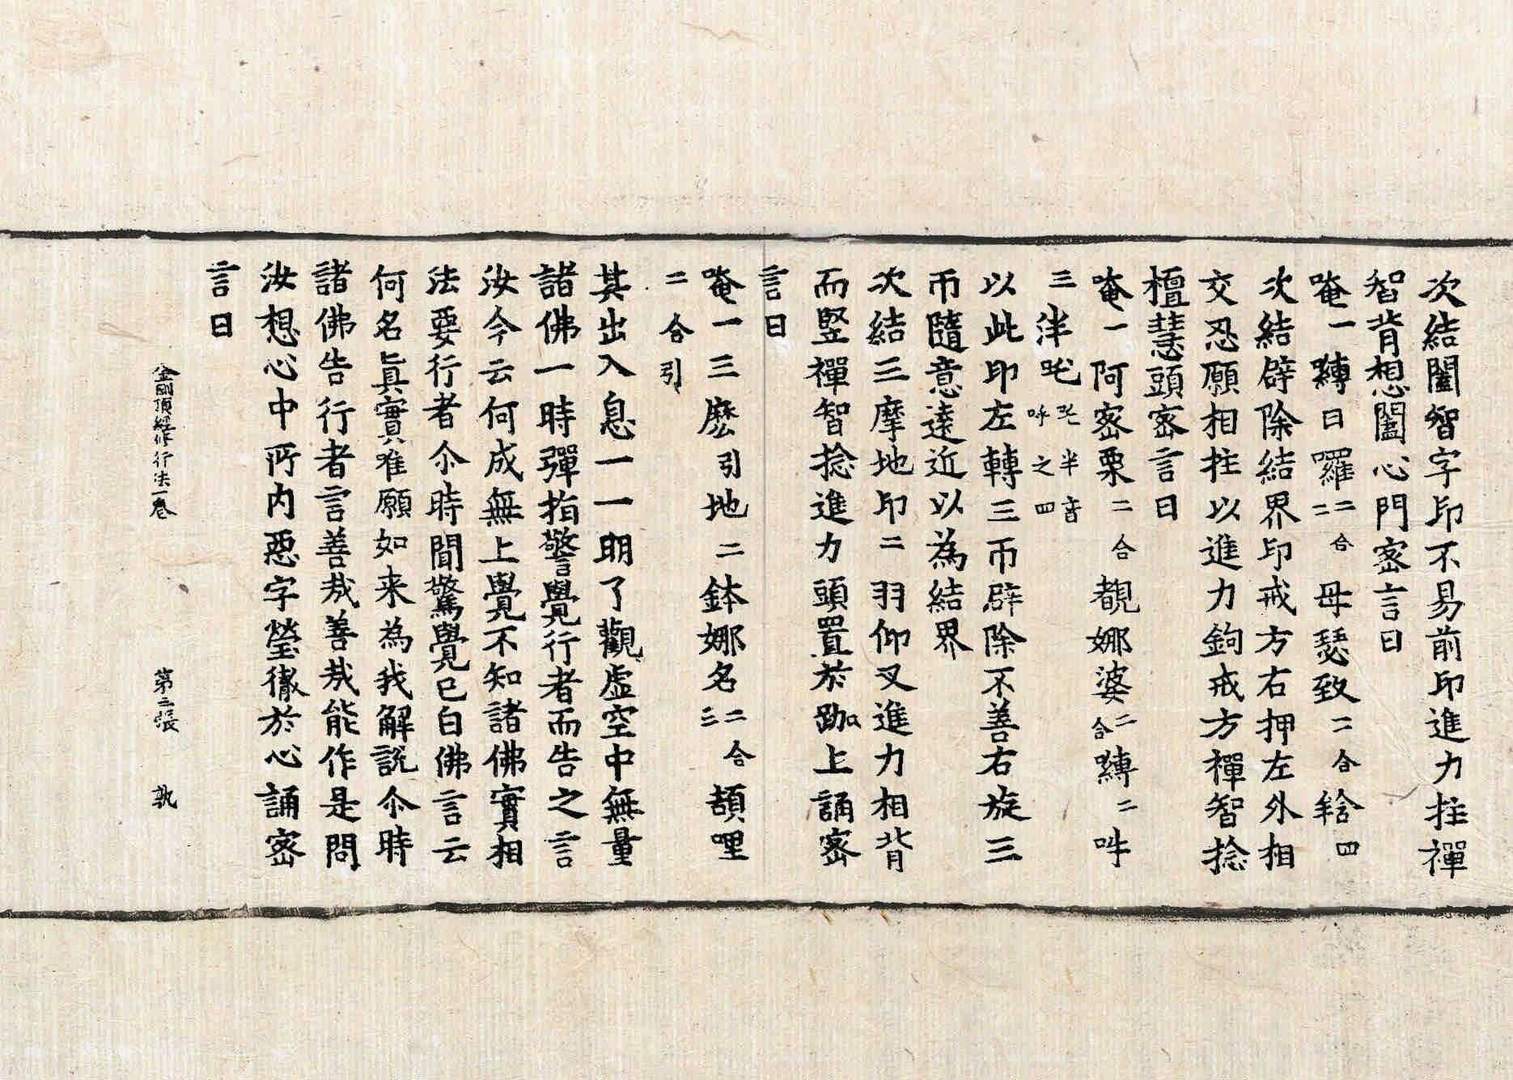 次結闔智字印不易前印進力拄禪
智背想闔心門密言曰
唵一縛日囉二合二母瑟致二合𤚥四
次結辟除結界印戒方右押左外相
交忍願相拄以進力鉤戒方禪智捻
檀慧頭密言曰
唵一阿密栗二合覩娜婆二合縛二吽
三泮吒吒半音呼之四
以此印左轉三帀辟除不善右旋三
帀隨意遠近以為結界
次結三摩地印二羽仰叉進力相背
而豎禪智捻進力頭置於跏上誦密
言曰
唵一三麽引地二鉢娜名二合三頡哩
二合引
其出入息一一明了觀虛空中無量
諸佛一時彈指警覺行者而告之言
汝今云何成無上覺不知諸佛實相
法要行者尒時聞驚覺已白佛言云
何名真實唯願如来為我解說尒時
諸佛告行者言善哉善哉能作是問
汝想心中所内惡字瑩徹於心誦密
言曰
金剛頂經修行法一卷 第三張 孰